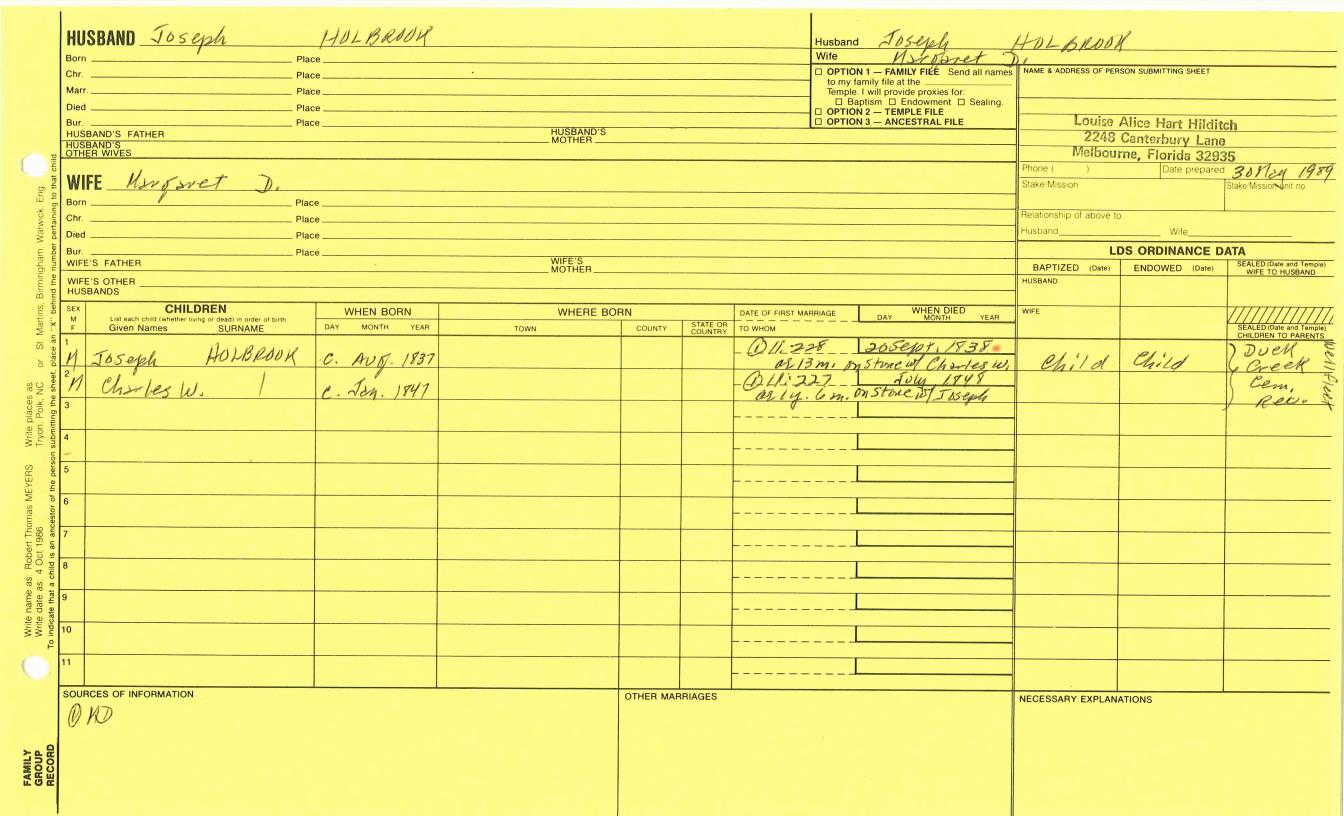 HUSBAND Joseph HOLBROOK
Born Place
Chr. Place
Marr. Place
Died Place
Bur. Place
HUSBAND'S FATHER HUSBAND'S MOTHER
HUSBAND'S OTHER WIVES
Husband Joseph HOLBROOK
Wife Margaret D.
☐ OPTION 1 — FAMILY FILE Send all names
to my family file at the
Temple. I will provide proxies for:
☐ Baptism ☐ Endowment ☐ Sealing.
☐ OPTION 2 — TEMPLE FILE
☐ OPTION 3 — ANCESTRAL FILE
NAME & ADDRESS OF PERSON SUBMITTING SHEET
Louise Alice Hart Hilditch
2248 Canterbury Lane
Melbourne, Florida 32935
Phone ( ) Date prepared 30 May 1989
Stake/Mission Stake/Mission unit no.
Relationship of above to
Husband Wife
WIFE Margaret D.
Born Place
Chr. Place
Died Place
Bur. Place
WIFE'S FATHER WIFE'S MOTHER
WIFE'S OTHER HUSBANDS
LDS ORDINANCE DATA
BAPTIZED (Date) ENDOWED (Date) SEALED (Date and Temple) WIFE TO HUSBAND
HUSBAND
WIFE
SEALED (Date and Temple) CHILDREN TO PARENTS
SEX M F
CHILDREN
List each child (whether living or dead) in order of birth
Given Names SURNAME
WHEN BORN
DAY MONTH YEAR
WHERE BORN
TOWN COUNTY STATE OR COUNTRY
DATE OF FIRST MARRIAGE
TO WHOM
WHEN DIED
DAY MONTH YEAR
1 M Joseph HOLBROOK c. Aug. 1837 ① 11:228 20 Sept. 1838
ae 13 m. on stone w/ Charles W.
Child Child
2 M Charles W. c. Jan. 1847 ① 11:227 July 1848
ae 1 y. 6 m. on stone w/ Joseph
Duck
Creek
Cem.
Rec.
Wellfleet
3
4
5
6
7
8
9
10
11
SOURCES OF INFORMATION
① MD
OTHER MARRIAGES
NECESSARY EXPLANATIONS
Write name as: Robert Thomas MEYERS Write places as: Tryon, Polk, NC or St. Martins, Birmingham, Warwick, Eng.
Write date as: 4 Oct 1986
To indicate that a child is an ancestor of the person submitting the sheet, place an "X" behind the number pertaining to that child.
FAMILY
GROUP
RECORD